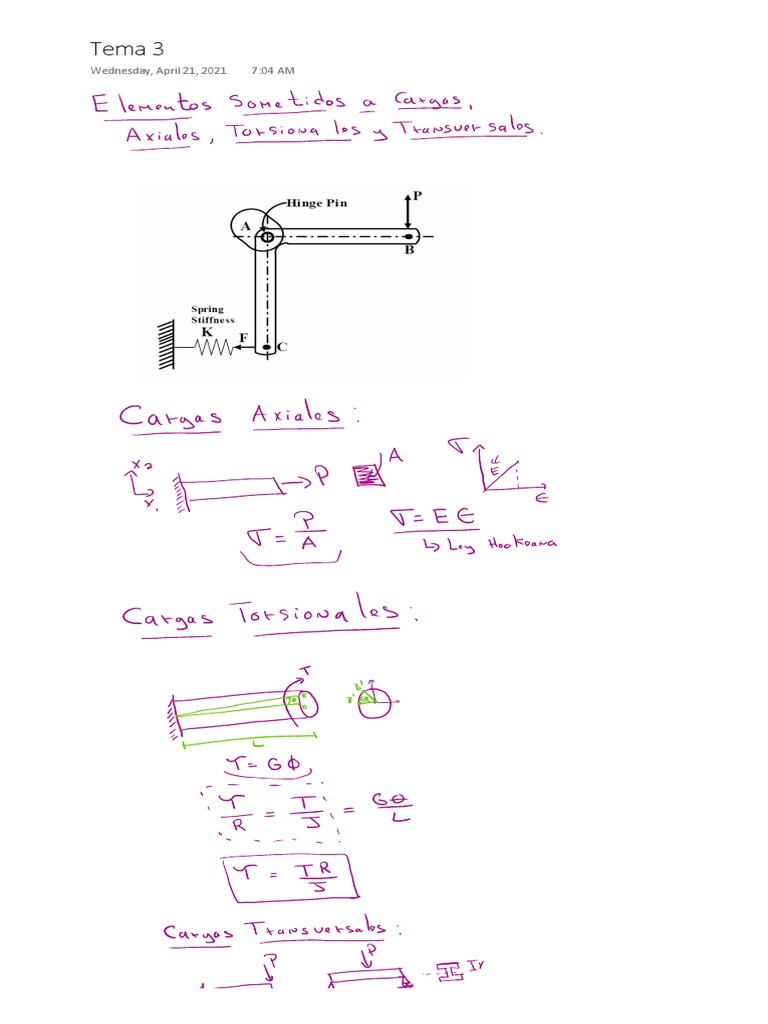 Tema 3
Wednesday, April 21, 2021 7:04 AM
Elementos Sometidos a Cargas,
Axiales, Torsionales y Transversales.
Hinge Pin
P
A
B
Spring
Stiffness
K
F
C
Cargas Axiales:
x2
x1
P
A
σ
E
ϵ
σ = P/A
σ = E ϵ
↳ Ley Hookeana
Cargas Torsionales:
T
L
τ = G ϕ
τ/R = T/J = Gθ/L
τ = TR/J
Cargas Transversales:
P
P